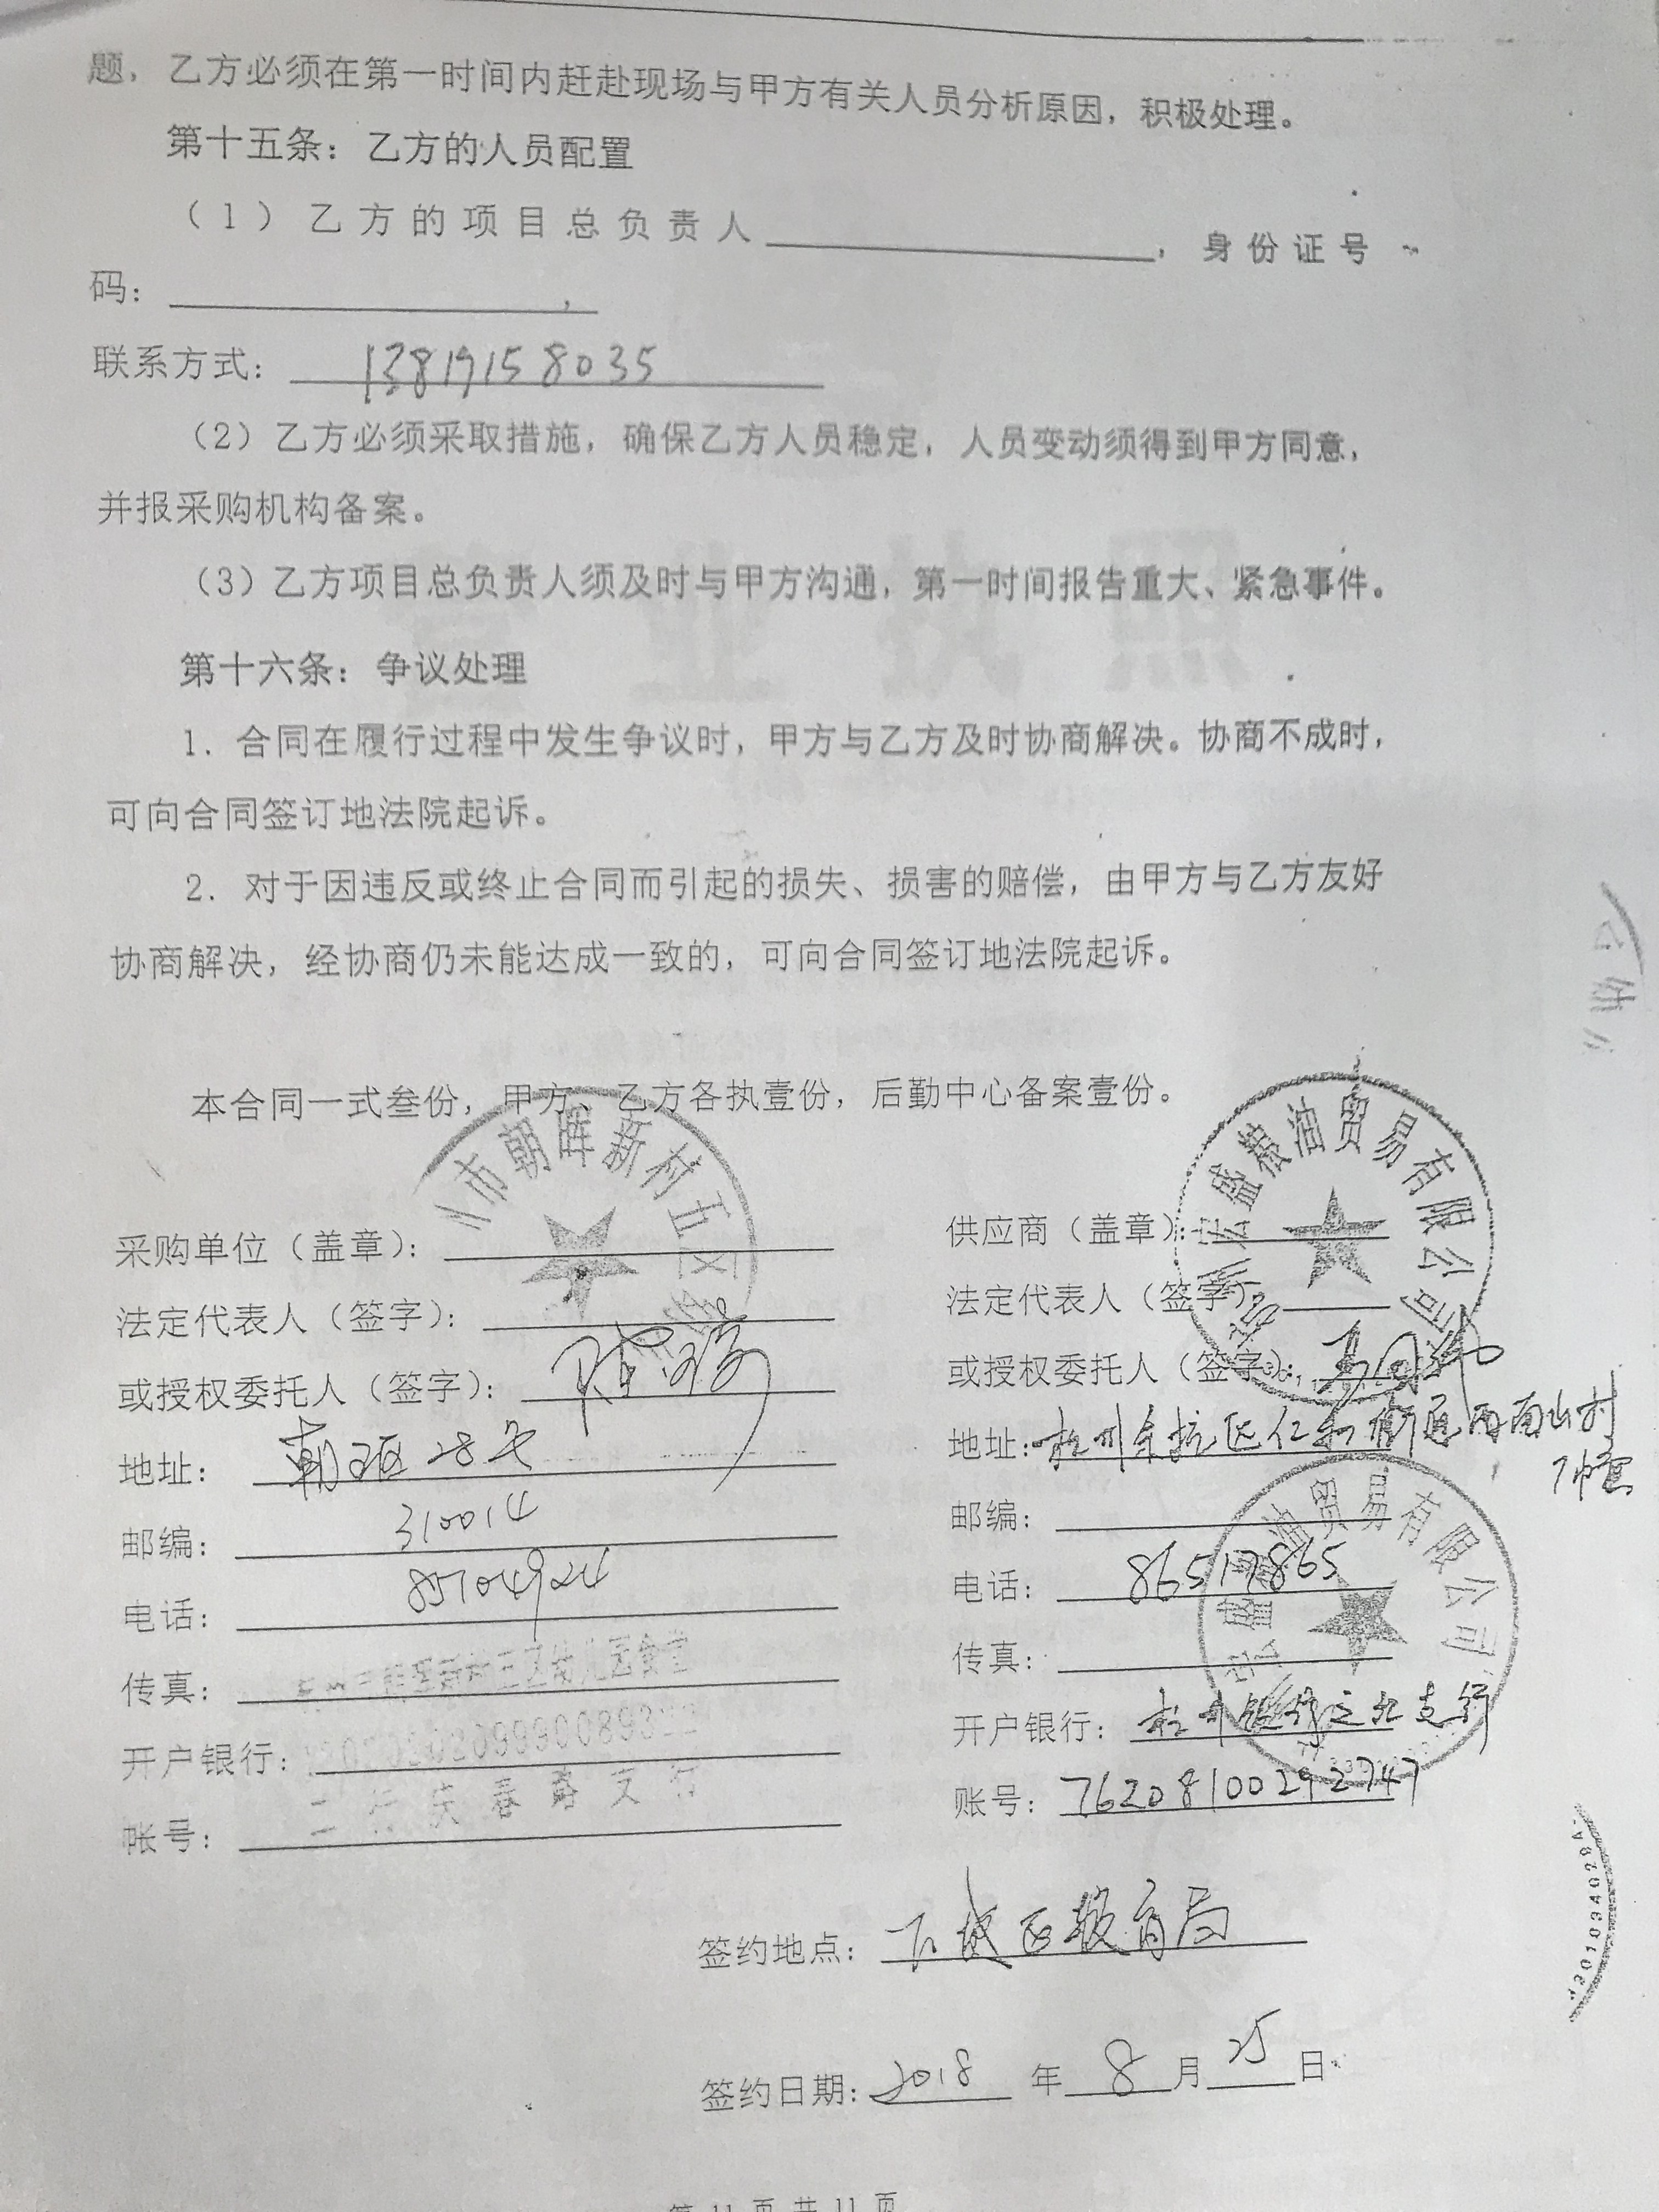 题，乙方必须在第一时间内赶赴现场与甲方有关人员分析原因，积极处理。
第十五条：乙方的人员配置
（1）乙方的项目总负责人，身份证号
码：，
联系方式：13819158035
（2）乙方必须采取措施，确保乙方人员稳定，人员变动须得到甲方同意，
并报采购机构备案。
（3）乙方项目总负责人须及时与甲方沟通，第一时间报告重大、紧急事件。
第十六条：争议处理
1. 合同在履行过程中发生争议时，甲方与乙方及时协商解决。协商不成时，
可向合同签订地法院起诉。
2. 对于因违反或终止合同而引起的损失、损害的赔偿，由甲方与乙方友好
协商解决，经协商仍未能达成一致的，可向合同签订地法院起诉。
本合同一式叁份，甲方、乙方各执壹份，后勤中心备案壹份。
市朝晖新村五区
采购单位（盖章）：
法定代表人（签字）：
或授权委托人（签字）：
地址：朝五区28号
邮编：310014
电话：85704924
传真：
开户银行：
帐号：
盛粮油贸易有限公司
供应商（盖章）：
法定代表人（签字）
或授权委托人（签字）：
地址：杭州余杭区仁和街道西南山村
7幢
邮编：
电话：86517865
传真：
油贸易有限公司
开户银行：杭州银行之北支行
账号：76208100292747
签约地点：下城区教育局
签约日期：2018年8月25日
第 11 页 共 11 页